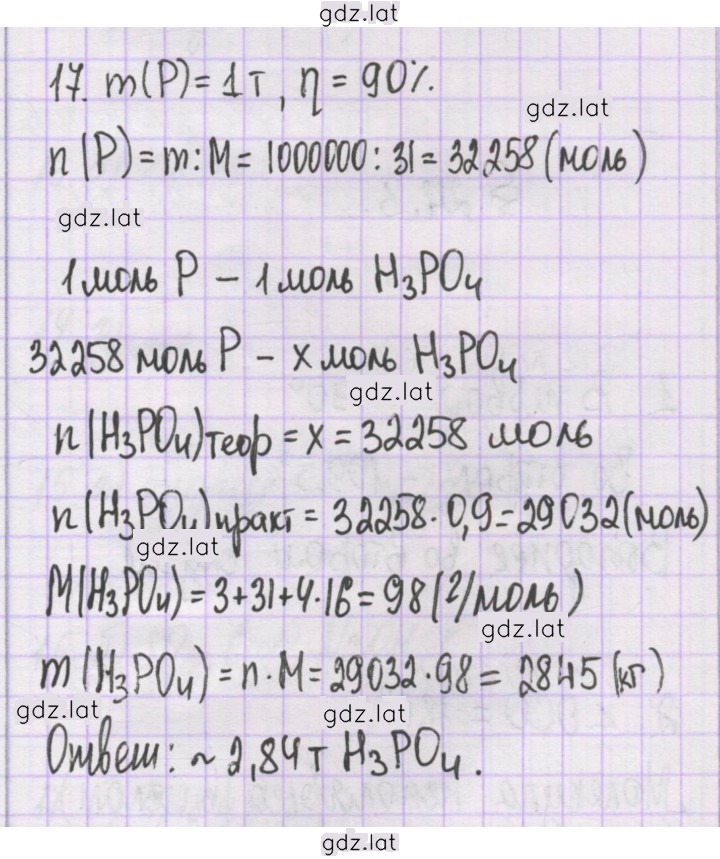 gdz.lat
17. m(P) = 1т, η = 90%.
gdz.lat
n(P) = m : M = 1000000 : 31 = 32258 (моль)
gdz.lat
1 моль P – 1 моль H₃PO₄
32258 моль P – x моль H₃PO₄
gdz.lat
n(H₃PO₄)теор = x = 32258 моль
n(H₃PO₄)практ = 32258 · 0,9 = 29032 (моль)
gdz.lat
M(H₃PO₄) = 3+31+4·16 = 98 (г/моль)
gdz.lat
m(H₃PO₄) = n · M = 29032 · 98 = 2845 (кг)
gdz.lat gdz.lat
Ответ: ~ 2,84 т H₃PO₄.
gdz.lat